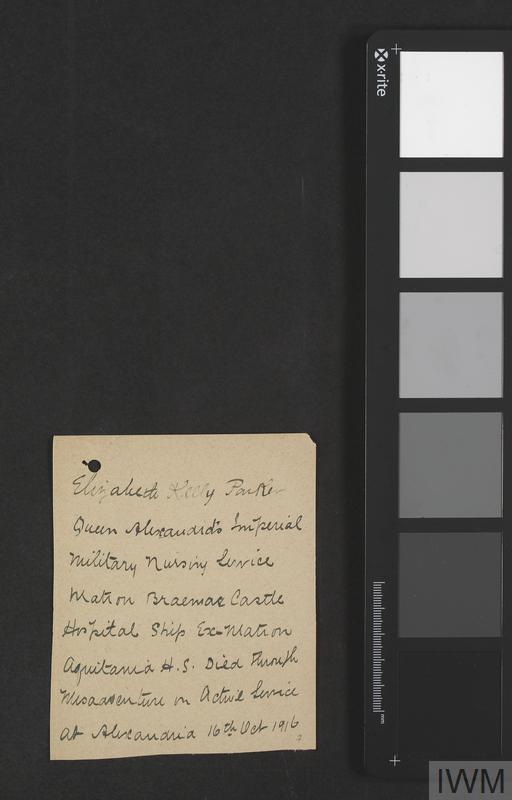 Elizabeth Keely Parker
Queen Alexandra's Imperial
Military Nursing Service
Matron Braemar Castle
Hospital Ship Ex-Matron
Aquitania H.S. Died through
Misadventure on Active Service
at Alexandria 16th Oct 1916
x-rite
mm
IWM